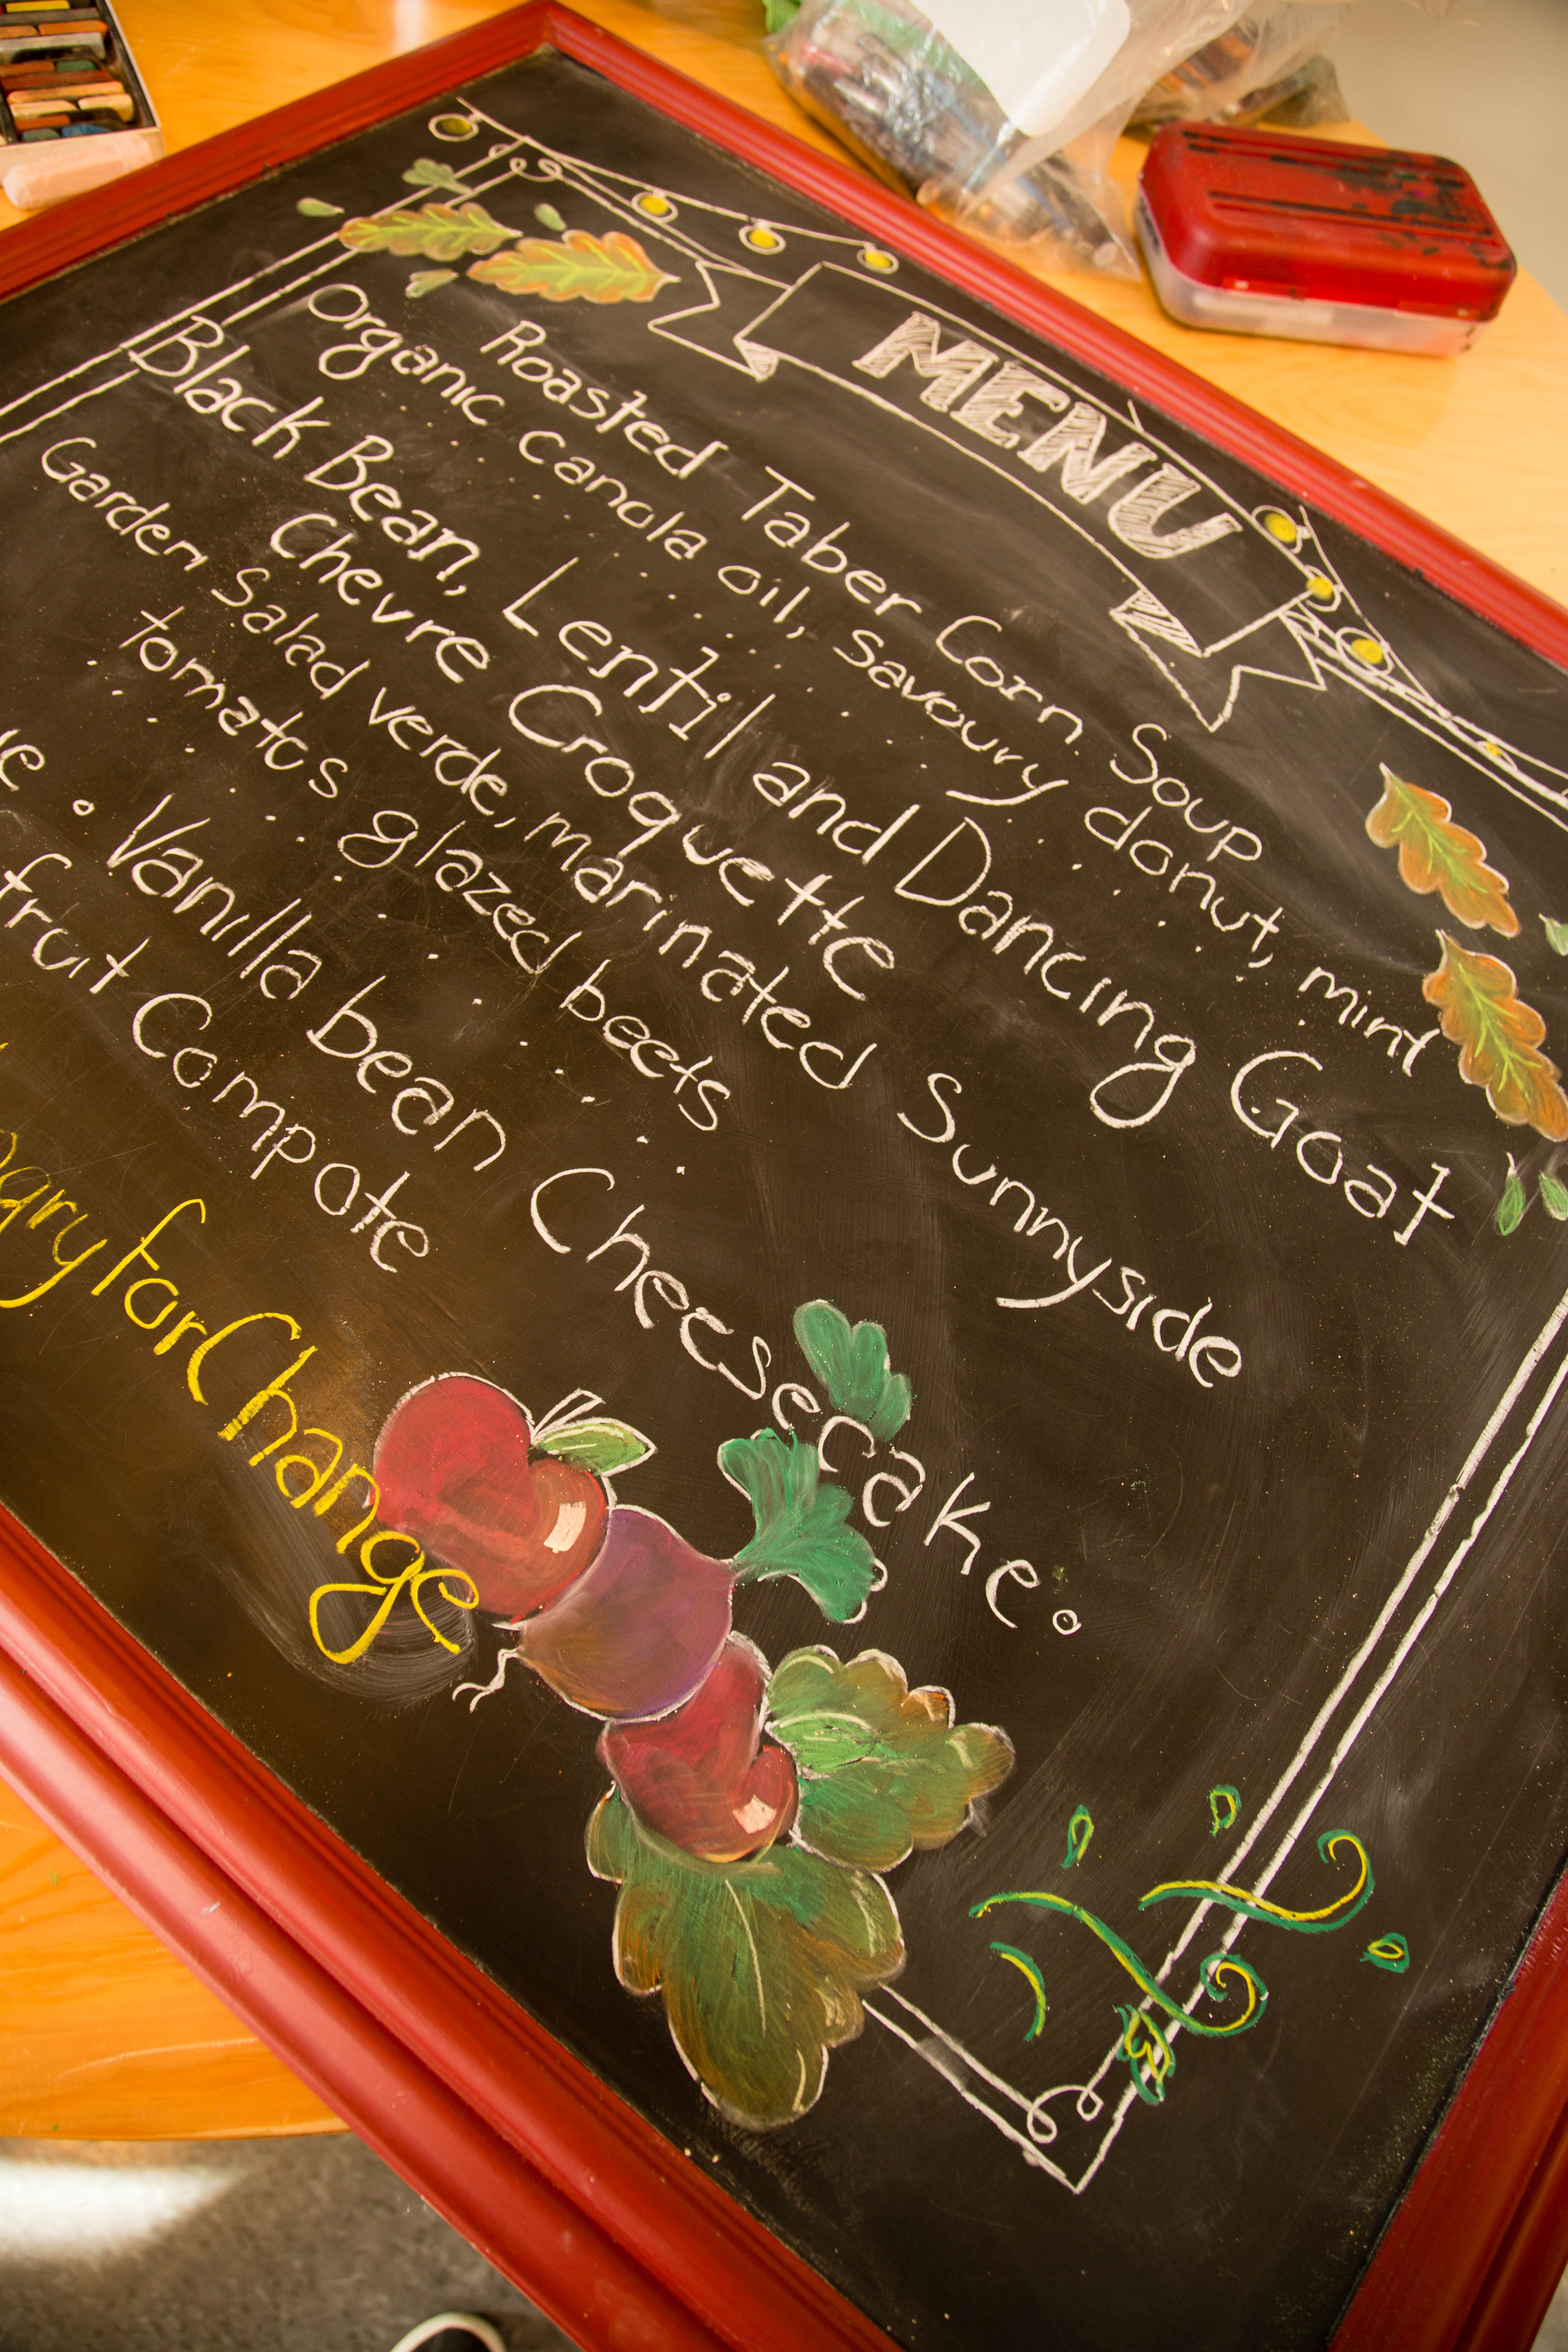 MENU
Roasted Taber Corn Soup
Organic canola oil, savoury donut, mint
Black Bean, Lentil and Dancing Goat
Chevre Croquette
Garden Salad verde, marinated Sunnyside
tomatos glazed beets
Vanilla bean Cheesecake
fruit Compote
gryforChange